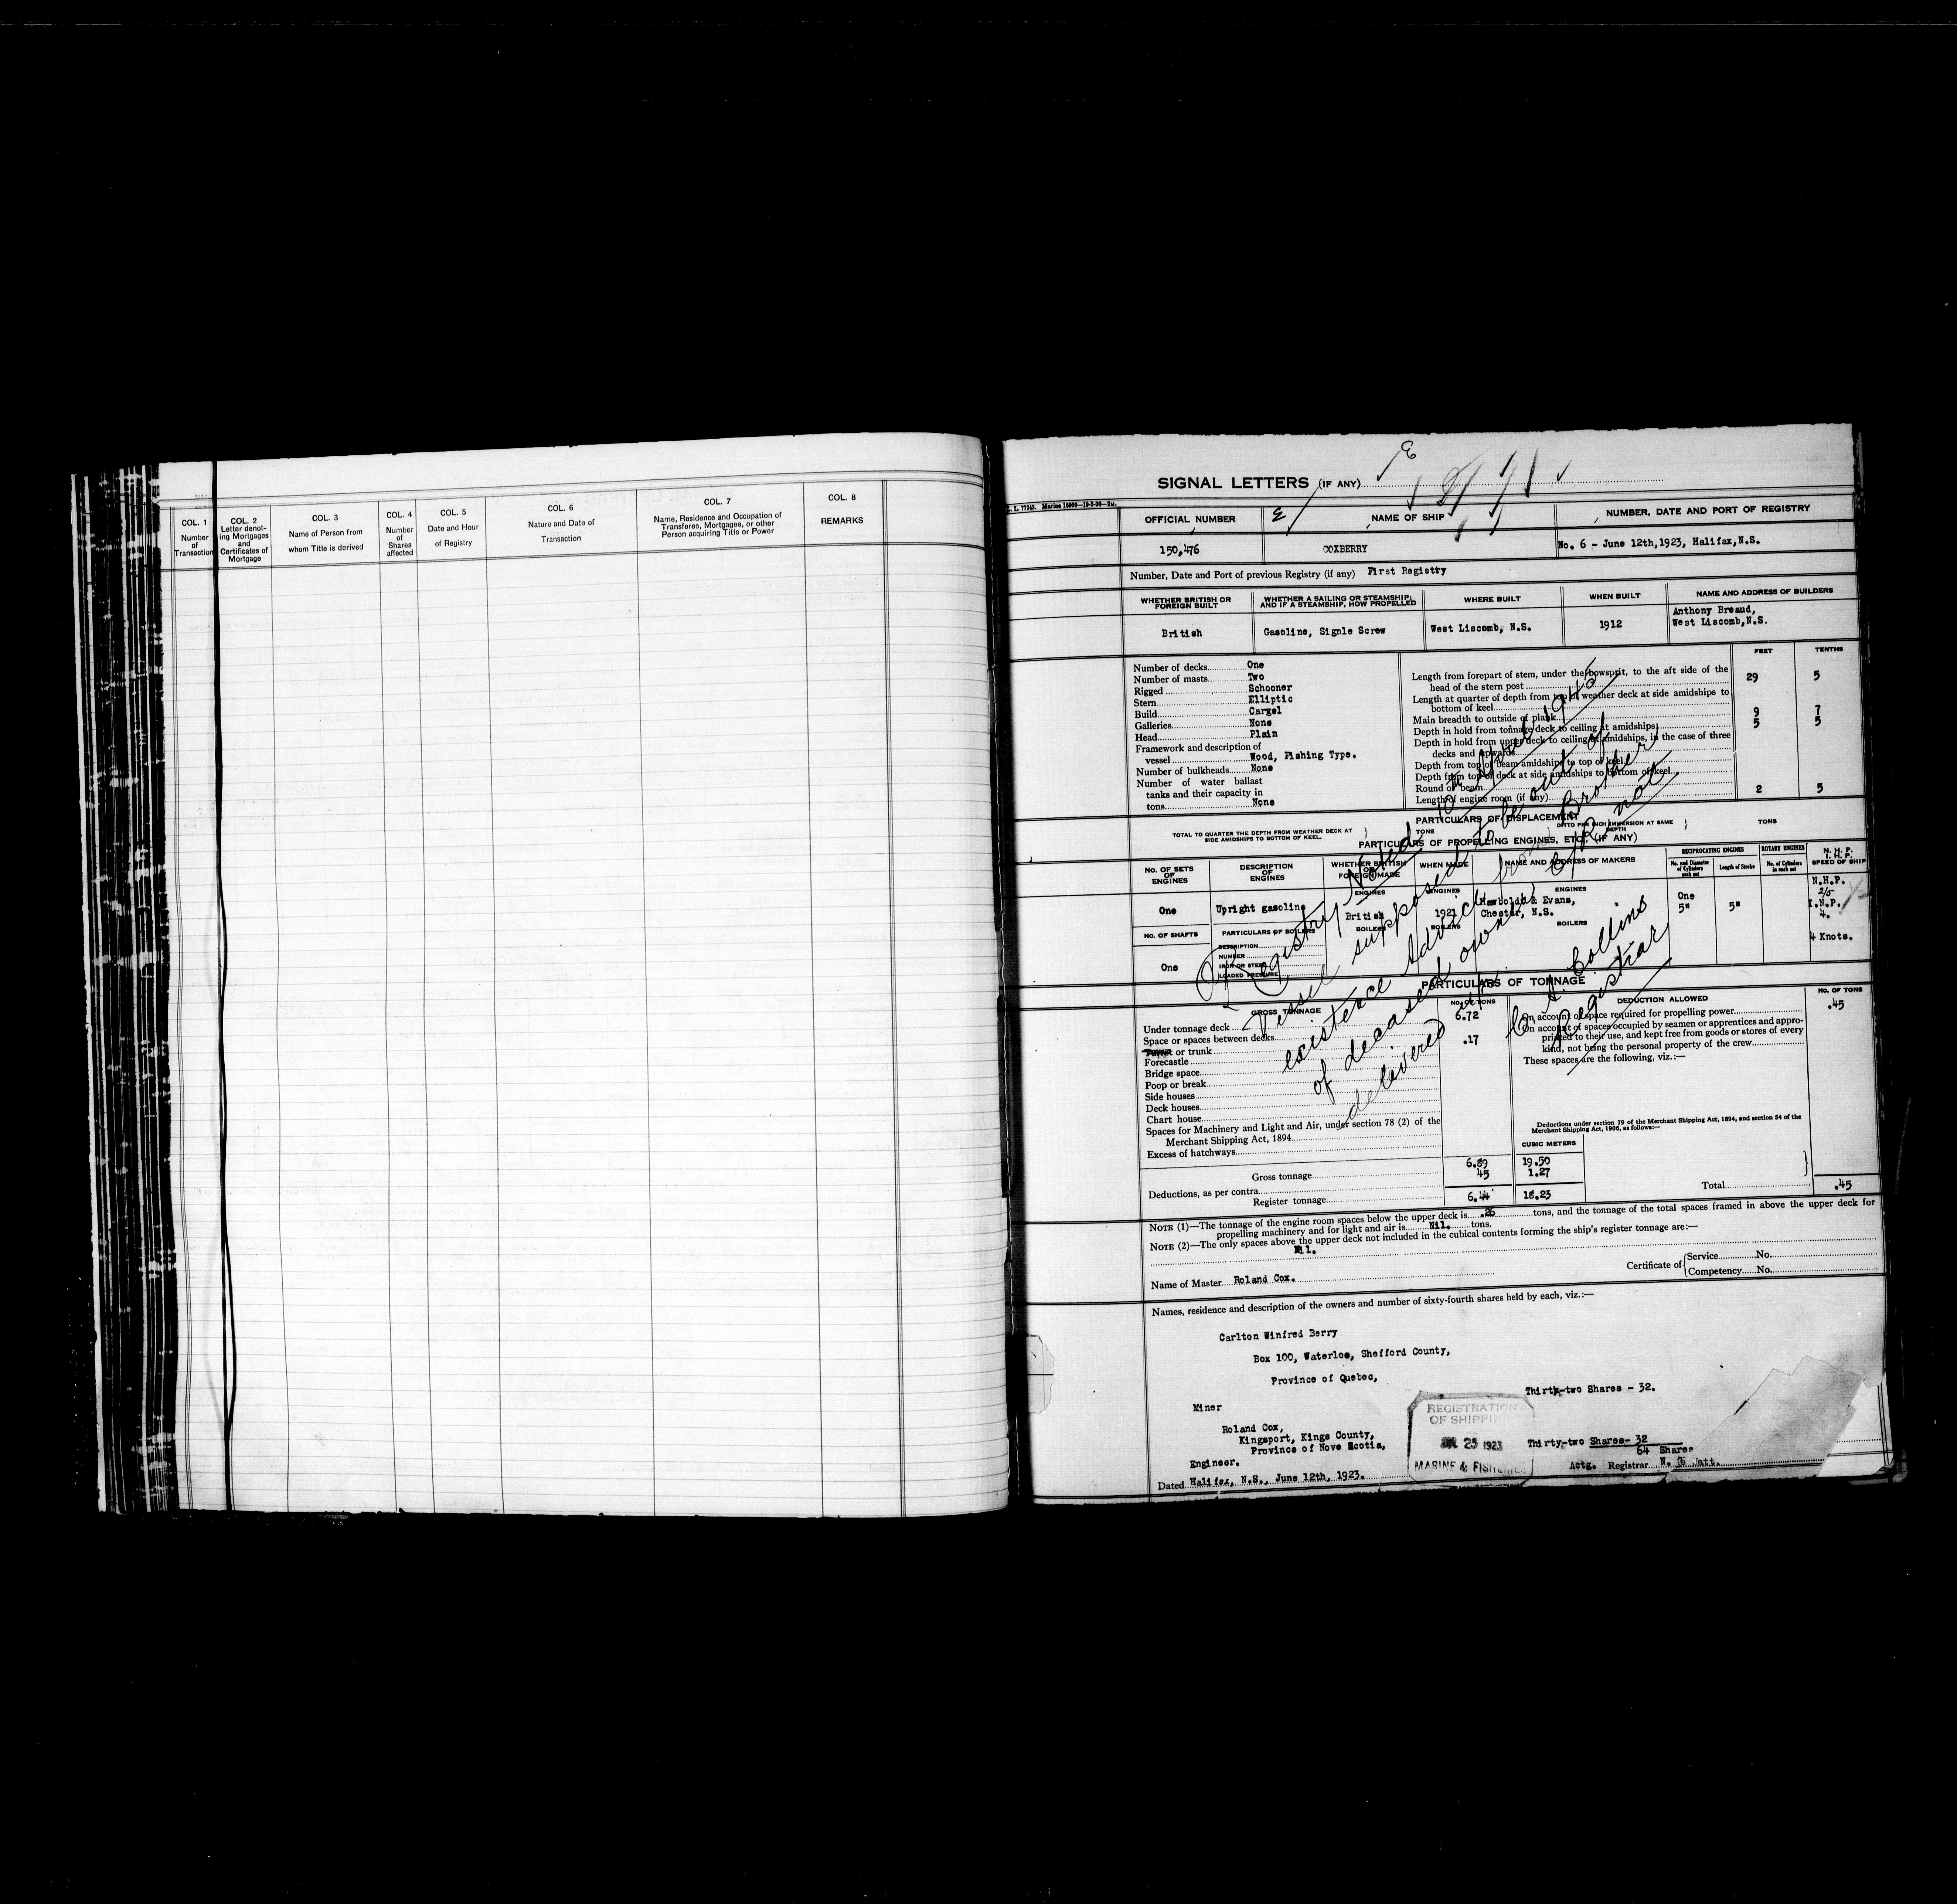 COL. 1
Number
of
Transaction
COL. 2
Letter denot-
ing Mortgages
and
Certificates of
Mortgage
COL. 3
Name of Person from
whom Title is derived
COL. 4
Number
of
Shares
affected
COL. 5
Date and Hour
of Registry
COL. 6
Nature and Date of
Transaction
COL. 7
Name, Residence and Occupation of
Transferee, Mortgagee, or other
Person acquiring Title or Power
COL. 8
REMARKS
SIGNAL LETTERS (IF ANY)
OFFICIAL NUMBER
NAME OF SHIP
NUMBER, DATE AND PORT OF REGISTRY
150,476
COXBERRY
No. 6 - June 12th,1923, Halifax,N.S.
Number, Date and Port of previous Registry (if any) First Registry
WHETHER BRITISH OR
FOREIGN BUILT
WHETHER A SAILING OR STEAMSHIP;
AND IF A STEAMSHIP, HOW PROPELLED
WHERE BUILT
WHEN BUILT
NAME AND ADDRESS OF BUILDERS
British
Gasoline, Signle Screw
West Liscomb, N.S.
1912
Anthony Breaud,
West Liscomb,N.S.
FEET TENTHS
Number of decks One
Number of masts Two
Rigged Schooner
Stern Elliptic
Build Cargel
Galleries None
Head Plain
Framework and description of
vessel Wood, Fishing Type.
Number of bulkheads None
Number of water ballast
tanks and their capacity in
tons None
Length from forepart of stem, under the bowsprit, to the aft side of the
head of the stern post 29 5
Length at quarter of depth from top of weather deck at side amidships to
bottom of keel
Main breadth to outside of plank 9 7
Depth in hold from tonnage deck to ceiling at amidships 5 5
Depth in hold from upper deck to ceiling at amidships, in the case of three
decks and upwards
Depth from top of beam amidships to top of keel
Depth from top of deck at side amidships to bottom of keel
Round of beam
Length of engine room (if any) 2 5
PARTICULARS OF DISPLACEMENT
TOTAL TO QUARTER THE DEPTH FROM WEATHER DECK AT
SIDE AMIDSHIPS TO BOTTOM OF KEEL.
TONS
DITTO PER INCH IMMERSION AT SAME
DEPTH
TONS
PARTICULARS OF PROPELLING ENGINES, ETC. (IF ANY)
No. OF SETS
OF
ENGINES
DESCRIPTION
OF
ENGINES
WHETHER BRITISH
OR
FOREIGN MADE
WHEN MADE
NAME AND ADDRESS OF MAKERS
RECIPROCATING ENGINES
No. and Diameter
of Cylinders
each set
Length of Stroke
ROTARY ENGINES
No. of Cylinders
in each set
N. H. P.
I. H. P.
SPEED OF SHIP
ENGINES
ENGINES
ENGINES
One
Upright gasoline
British
1921
Hawboldt & Evans,
Chester, N.S.
One
5"
5"
N.H.P.
2/5
I.N.P.
4.
4 Knots.
No. OF SHAFTS
PARTICULARS OF BOILERS
BOILERS
BOILERS
BOILERS
One
DESCRIPTION
NUMBER
IRON OR STEEL
LOADED PRESSURE
Registry Noted 10th April 1945
Vessel supposed to be out of
existence Advice from Brother
of deceased owner C/R not
delivered up.
C. A. Collins
Registrar
PARTICULARS OF TONNAGE
GROSS TONNAGE
No. OF TONS
DEDUCTION ALLOWED
No. OF TONS
Under tonnage deck 6.72
Space or spaces between decks
or trunk .17
Forecastle
Bridge space
Poop or break
Side houses
Deck houses
Chart house
Spaces for Machinery and Light and Air, under section 78 (2) of the
Merchant Shipping Act, 1894
Excess of hatchways
On account of space required for propelling power .45
On account of spaces occupied by seamen or apprentices and appro-
priated to their use, and kept free from goods or stores of every
kind, not being the personal property of the crew
These spaces are the following, viz.:—
Deductions under section 79 of the Merchant Shipping Act, 1894, and section 54 of the
Merchant Shipping Act, 1906, as follows:—
CUBIC METERS
Gross tonnage 6.89 19.50
Deductions, as per contra 45 1.27
Register tonnage 6.44 18.23
Total .45
NOTE (1)—The tonnage of the engine room spaces below the upper deck is .26 tons, and the tonnage of the total spaces framed in above the upper deck for
propelling machinery and for light and air is Nil. tons.
NOTE (2)—The only spaces above the upper deck not included in the cubical contents forming the ship's register tonnage are:—
Nil.
Name of Master Roland Cox.
Certificate of Service No.
Competency No.
Names, residence and description of the owners and number of sixty-fourth shares held by each, viz.:—
Carlton Winfred Berry
Box 100, Waterloo, Shefford County,
Province of Quebec,
Thirty-two Shares - 32.
Miner
Roland Cox,
Kingsport, Kings County,
Province of Nove Scotia,
Engineer.
Thirty-two Shares- 32
64 Shares
REGISTRATION
OF SHIPPING
25 1923
MARINE & FISHERIES
Dated Halifax, N.S., June 12th, 1923.
Actg. Registrar